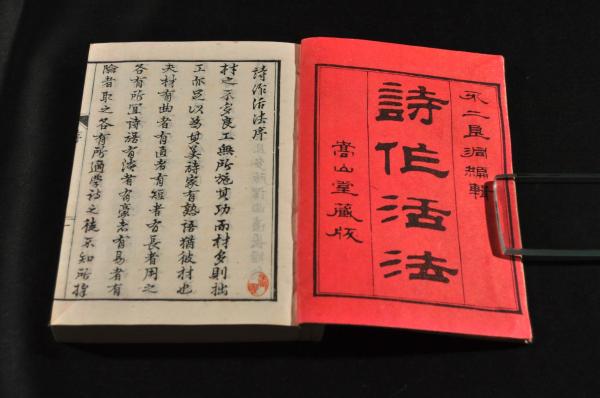 不二良洞編輯
詩作活法
嵩山堂藏版
詩作活法序
材之不良工無所施其功而材多則拙
工亦足以為其美詩家有熟語猶彼材也
夫材有曲者有直者有短者有長者用之
各有所宜詩語有者有豪者有易者有
險者取之各有所適學詩之徒不知所擇